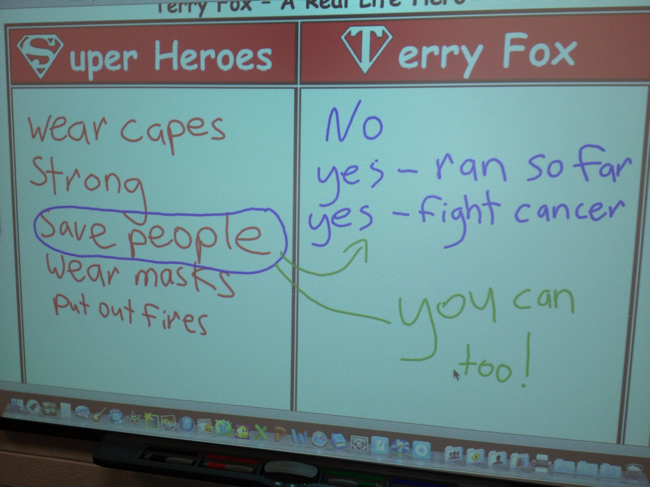 Terry Fox - A Real Life Hero
Super Heroes
Terry Fox
wear capes
Strong
Save people
wear masks
put out fires
No
yes - ran so far
yes - fight cancer
you can
too!